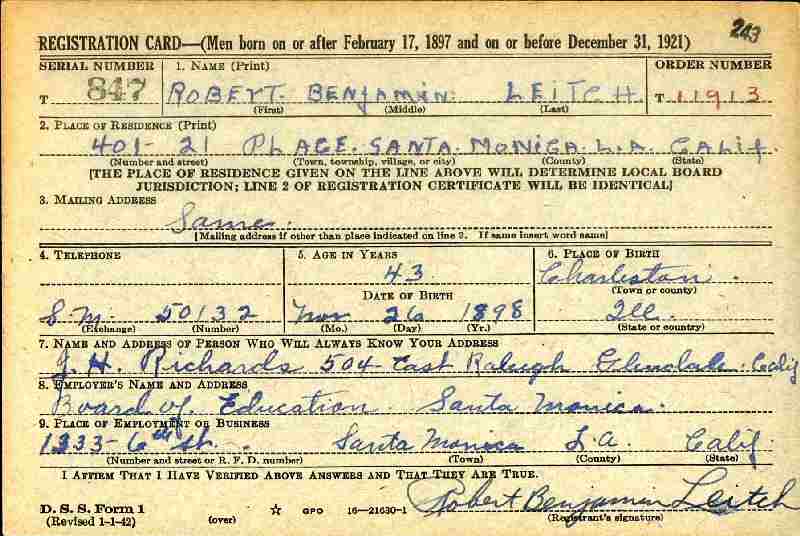 243
REGISTRATION CARD—(Men born on or after February 17, 1897 and on or before December 31, 1921)
SERIAL NUMBER 1. NAME (Print) ORDER NUMBER
T 847 ROBERT BENJAMIN LEITCH T 11913
(First) (Middle) (Last)
2. PLACE OF RESIDENCE (Print)
401- 21 PLACE. SANTA MONICA. L.A. CALIF.
(Number and street) (Town, township, village, or city) (County) (State)
[THE PLACE OF RESIDENCE GIVEN ON THE LINE ABOVE WILL DETERMINE LOCAL BOARD
JURISDICTION; LINE 2 OF REGISTRATION CERTIFICATE WILL BE IDENTICAL]
3. MAILING ADDRESS
Same.
[Mailing address if other than place indicated on line 2. If same insert word same]
4. TELEPHONE 5. AGE IN YEARS 6. PLACE OF BIRTH
43 Charleston.
DATE OF BIRTH (Town or county)
S.M. 50132 Nov 26 1898 Ill.
(Exchange) (Number) (Mo.) (Day) (Yr.) (State or country)
7. NAME AND ADDRESS OF PERSON WHO WILL ALWAYS KNOW YOUR ADDRESS
J. H. Richards 504 East Raleigh Glendale. Calif
8. EMPLOYER'S NAME AND ADDRESS
Board of Education Santa Monica.
9. PLACE OF EMPLOYMENT OR BUSINESS
1333- 6th St. Santa Monica L.A. Calif.
(Number and street or R. F. D. number) (Town) (County) (State)
I AFFIRM THAT I HAVE VERIFIED ABOVE ANSWERS AND THAT THEY ARE TRUE.
Robert Benjamin Leitch
D. S. S. Form 1
(Revised 1-1-42) (over) ☆ GPO 16—21630-1 (Registrant's signature)